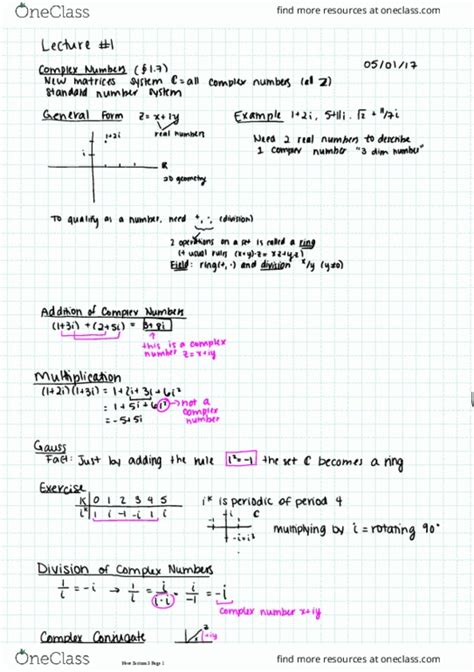 OneClass
find more resources at oneclass.com
Lecture #1
05/01/17
Complex Numbers (§1.7)
New matrices system ℂ = all complex numbers (el Z)
Standard number system
General Form z = x+iy
real numbers
Example 1+2i, 5+11i, √2 + π/7i
Need 2 real numbers to describe
1 complex number "2 dim number"
1+2i
i
R
2D geometry
To qualify as a number, need +, ·, (division)
2 operations on a set is called a ring
(+ usual rules (x+y)·z = xz+yz)
Field: ring(+, ·) and division x/y (y≠0)
Addition of Complex Numbers
(1+3i) + (2+5i) = 3+8i
this is a complex
number z=x+iy
Multiplication
(1+2i)(1+3i) = 1+2i+3i+6i²
= 1+5i+6i² → not a
complex
number
= -5+5i
Gauss
Fact: Just by adding the rule i²=-1 the set ℂ becomes a ring
Exercise
K 0 1 2 3 4 5
iᴷ 1 i -1 -i 1 i
iᴷ is periodic of period 4
i C
-i=i³
multiplying by i = rotating 90°
Division of Complex Numbers
1/i = -i → 1/i = i/i·i = i/-1 = -i
complex number x+iy
Complex Conjugate
OneClass
find more resources at oneclass.com